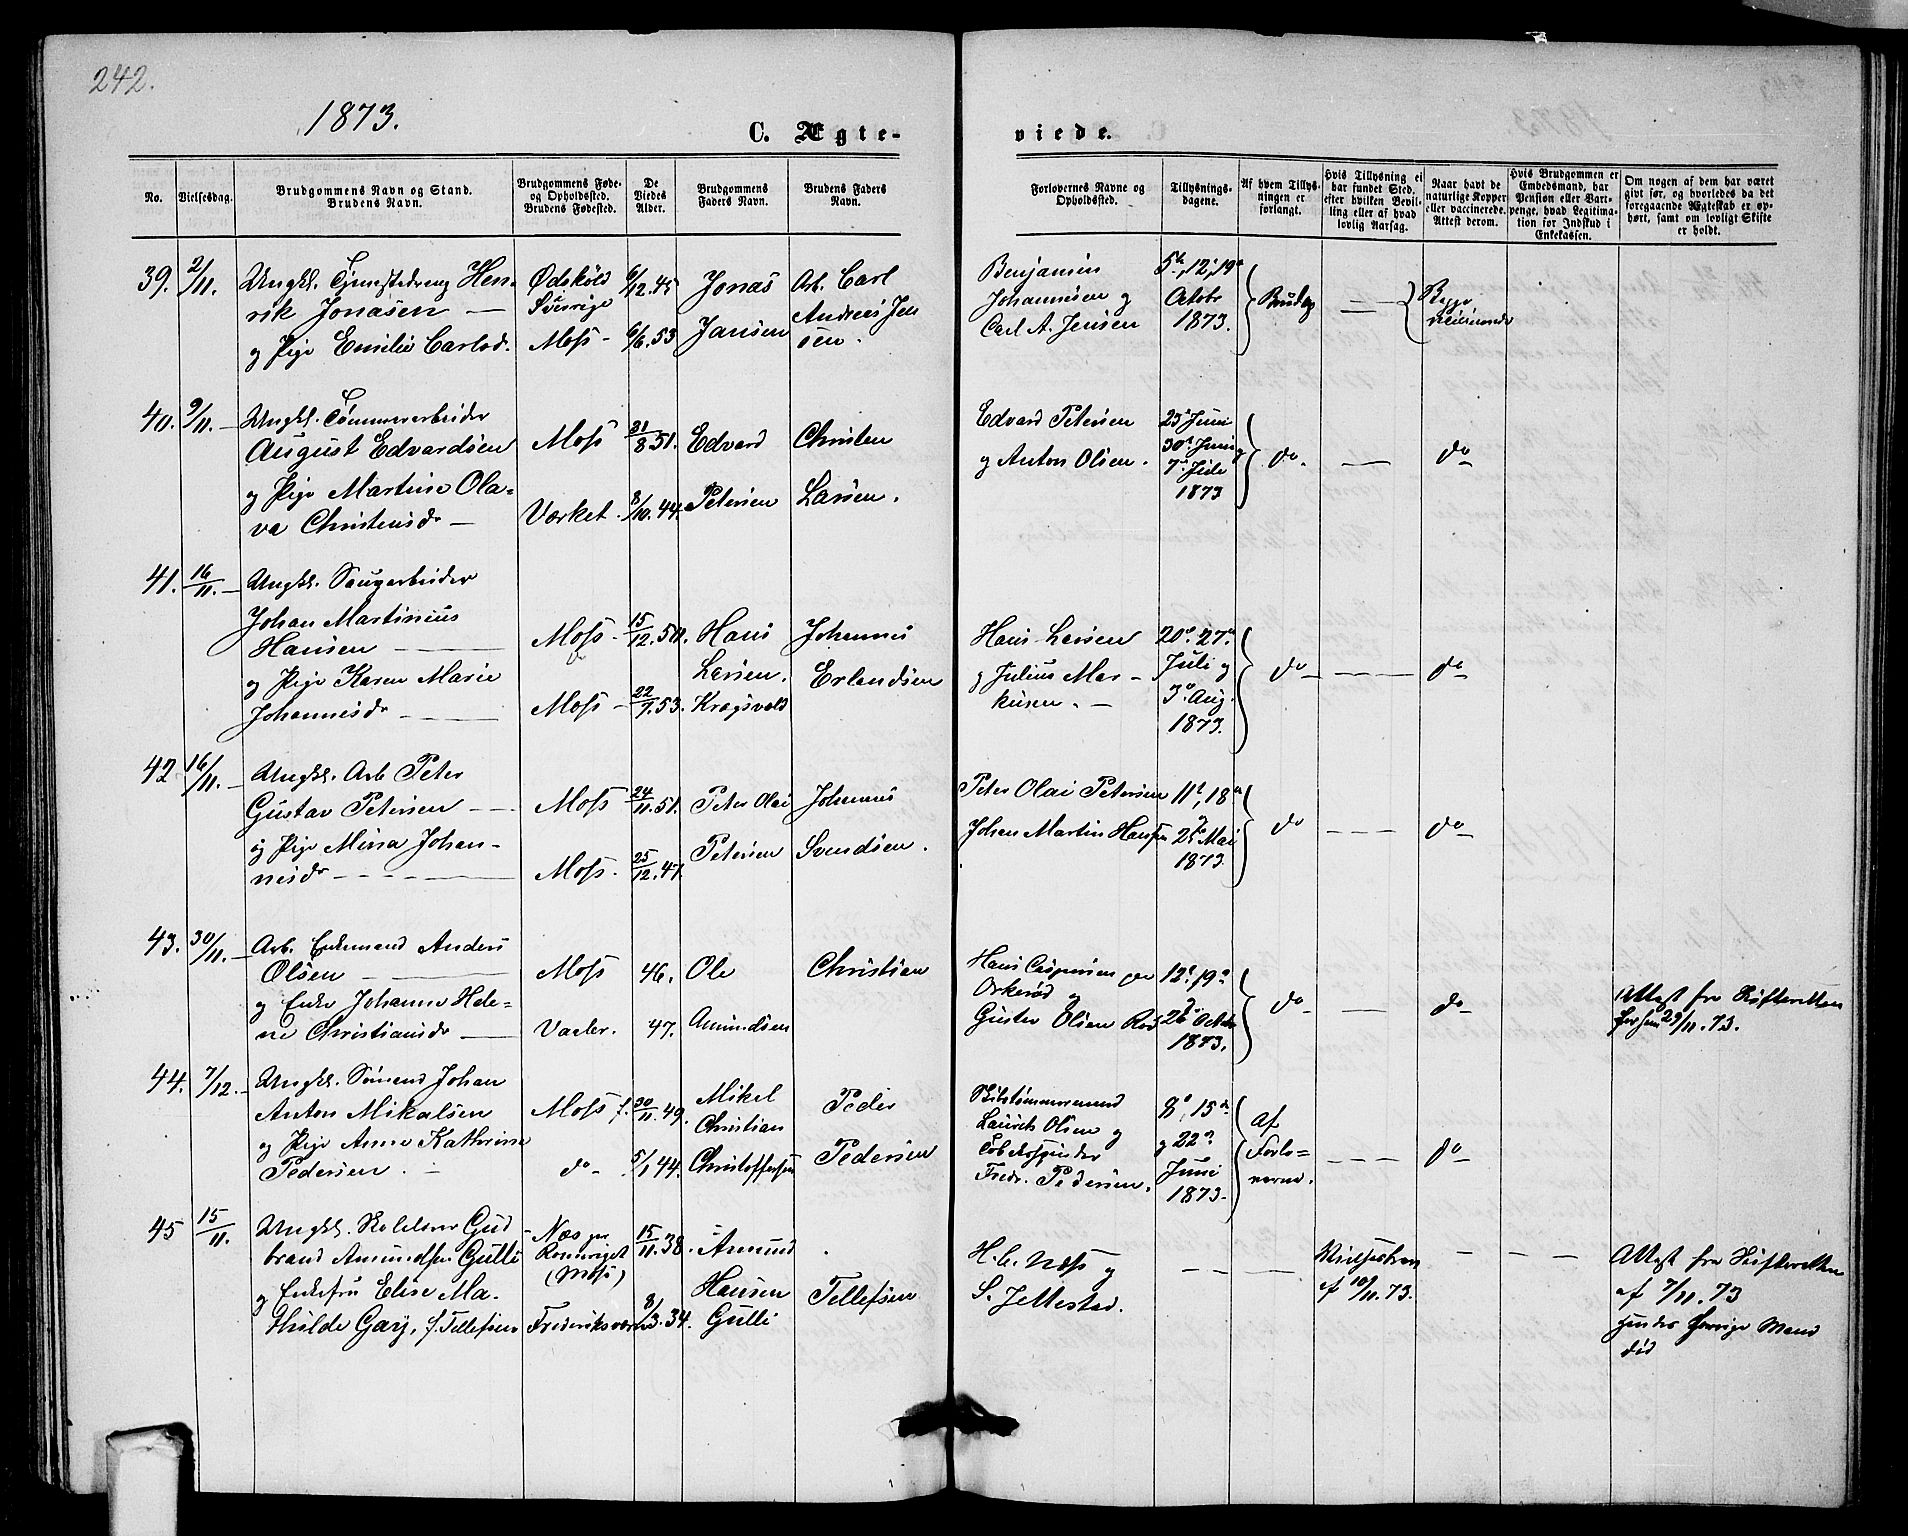 242.
1873.
C. Ægte-
viede.
No.
Vielsesdag.
Brudgommens Navn og Stand.
Brudens Navn.
Brudgommens Føde-
og Opholdssted.
Brudens Fødested.
De
Viedes
Alder.
Brudgommens
Faders Navn.
Brudens Faders
Navn.
Forlovernes Navne og
Opholdssted.
Tillysnings-
dagene.
Af hvem Tillys-
ningen er
forlangt.
Hvis Tillysning ei
har fundet Sted,
efter hvilken Bevil-
ling eller af hvad
lovlig Aarsag.
Naar havt de
naturlige Kopper
eller vaccinerede.
Attest derom.
Hvis Brudgommen er
Embedsmand, har
Pension eller Vart-
penge, hvad Legitima-
tion for Indskud i
Enkekassen.
Om nogen af dem har været
givt før, og hvorledes da det
foregaaende Ægteskab er op-
hørt, samt om lovligt Skifte
er holdt.
39. 2/11.
Ungkl. Tjenestedreng Hen-
rik Jonasen —
og Pige Emilie Carlsd.
Ødsköld
Sverrige
Moss -
6/12. 45
6/6. 53
Jonas
Jansen
Arb. Carl
Andreas Jen
sen.
Benjamin
Johannesen og
Carl A. Jensen
5te, 12te, 19de
Octobr
1873.
Brudg
Begge
vaccinerede
40. 9/11. —
Ungkl. Tømmerarbeider
August Edvardsen
og Pige Martine Ola-
va Christensdr —
Moss
Værket.
21/8 51.
8/10. 44.
Edvard
Petersen
Christen
Larsen.
Edvard Petersen
og Anton Olsen.
23de Juni
30te Juni og
7de Juli
1873
do.
—
do
41. 16/11. —
Ungkl. Saugarbeider
Johan Martinius
Hansen —
og Pige Karen Marie
Johannesdr. —
Moss -
Moss -
15/12. 50.
22/7. 53.
Hans
Larsen.
Kragsvold
Johannes
Erlandsen
Hans Larsen
og Julius Mar-
kusen. —
20de 27de
Juli og
3de Aug.
1873.
do —
do —
42 16/11. —
Ungkl. Arb Peter
Gustav Petersen —
og Pige Mina Johan-
nesdr —
Moss
Moss -
24/11. 51.
25/12. 47.
Peter Olai
Petersen
Johannes
Svendsen.
Peter Olai Petersen
Johan Martin Hansen
11te, 18de
og
25de Mai
1873.
do
do —
43. 30/11. —
Arb. Enkemand Anders
Olsen —
og Enke Johanne Hele-
ne Christiansdr —
Moss
Vaaler.
46.
47.
Ole
Amundsen
Christian
Hans Caspersen
Orkerød og
Gustav Olsen Rød
12te, 19de
og
26de Octbr
1873.
do —
do —
Attest fra Skifteretten
29/11. 73.
44. 7/12. —
Ungkl. Sømand Johan
Anton Mikalsen
og Pige Anne Kathrine
Pedersen. —
Moss
do -
30/11. 49.
5/1 44.
Mikel
Christian
Christoffersen
Peder
Pedersen
Laurits Olsen og
Fredr. Pedersen.
8de, 15de
og 22de
Juni
1873.
af
Forlo-
verne.
do —
45 15/11.
Ungkl. Gud-
brand Amundsen Gulli
og Enkefru Elise Ma-
thilde Gary, f. Tellefsen
Næs pr.
Romeriget
(Moss)
Frederiksværn
15/11. 38.
8/3. 34.
Amund
Hansen
Gulli
Tellefsen
H. C. Næss og
S. Jellestad.
Vielsesbrev
af 10/11. 73.
Attest fra Skifteretten
af 7/11. 73
hendes forrige Mand
død